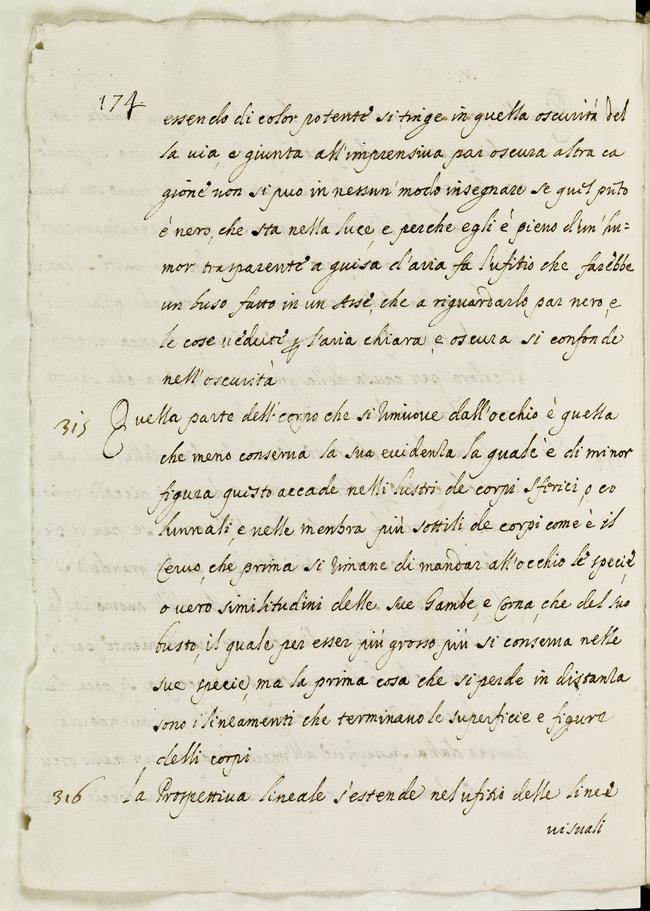 174
essendo di color potente si tinge in quella oscurità del
la via, e giunta all'imprensiva par oscura altra ca
gione non si può in nessun' modo insegnare se quel pūto
è nero, che sta nella luce, e perche egli è pieno d'un' hu=
mor trasparente a guisa d'aria fa l'ufitio che farebbe
un buso fatto in un Asse, che a riguardarlo par nero, e
le cose vedute ꝑ l'aria chiara, e oscura si confonde
nell'oscurità
315 Quella parte dell'corpo che si rimuove dall'occhio è quella
che meno conserva la sua evidenza la quale è di minor
figura questo accade nelli lustri de corpi sferici, o co
lunnali, e nelle menbra più sottili de corpi come è il
Cervo, che prima si rimane di mandar all'occhio le specie,
o vero similitudini delle sue Gambe, e Corna, che del suo
busto, il quale per esser più grosso, più si conserva nelle
sue specie, ma la prima cosa che si perde in distanza
sono i lineamenti che terminano le superficie e figure
delli corpi
316 la Prospettiva lineale s'estende nel ufitio delle linee
visuali